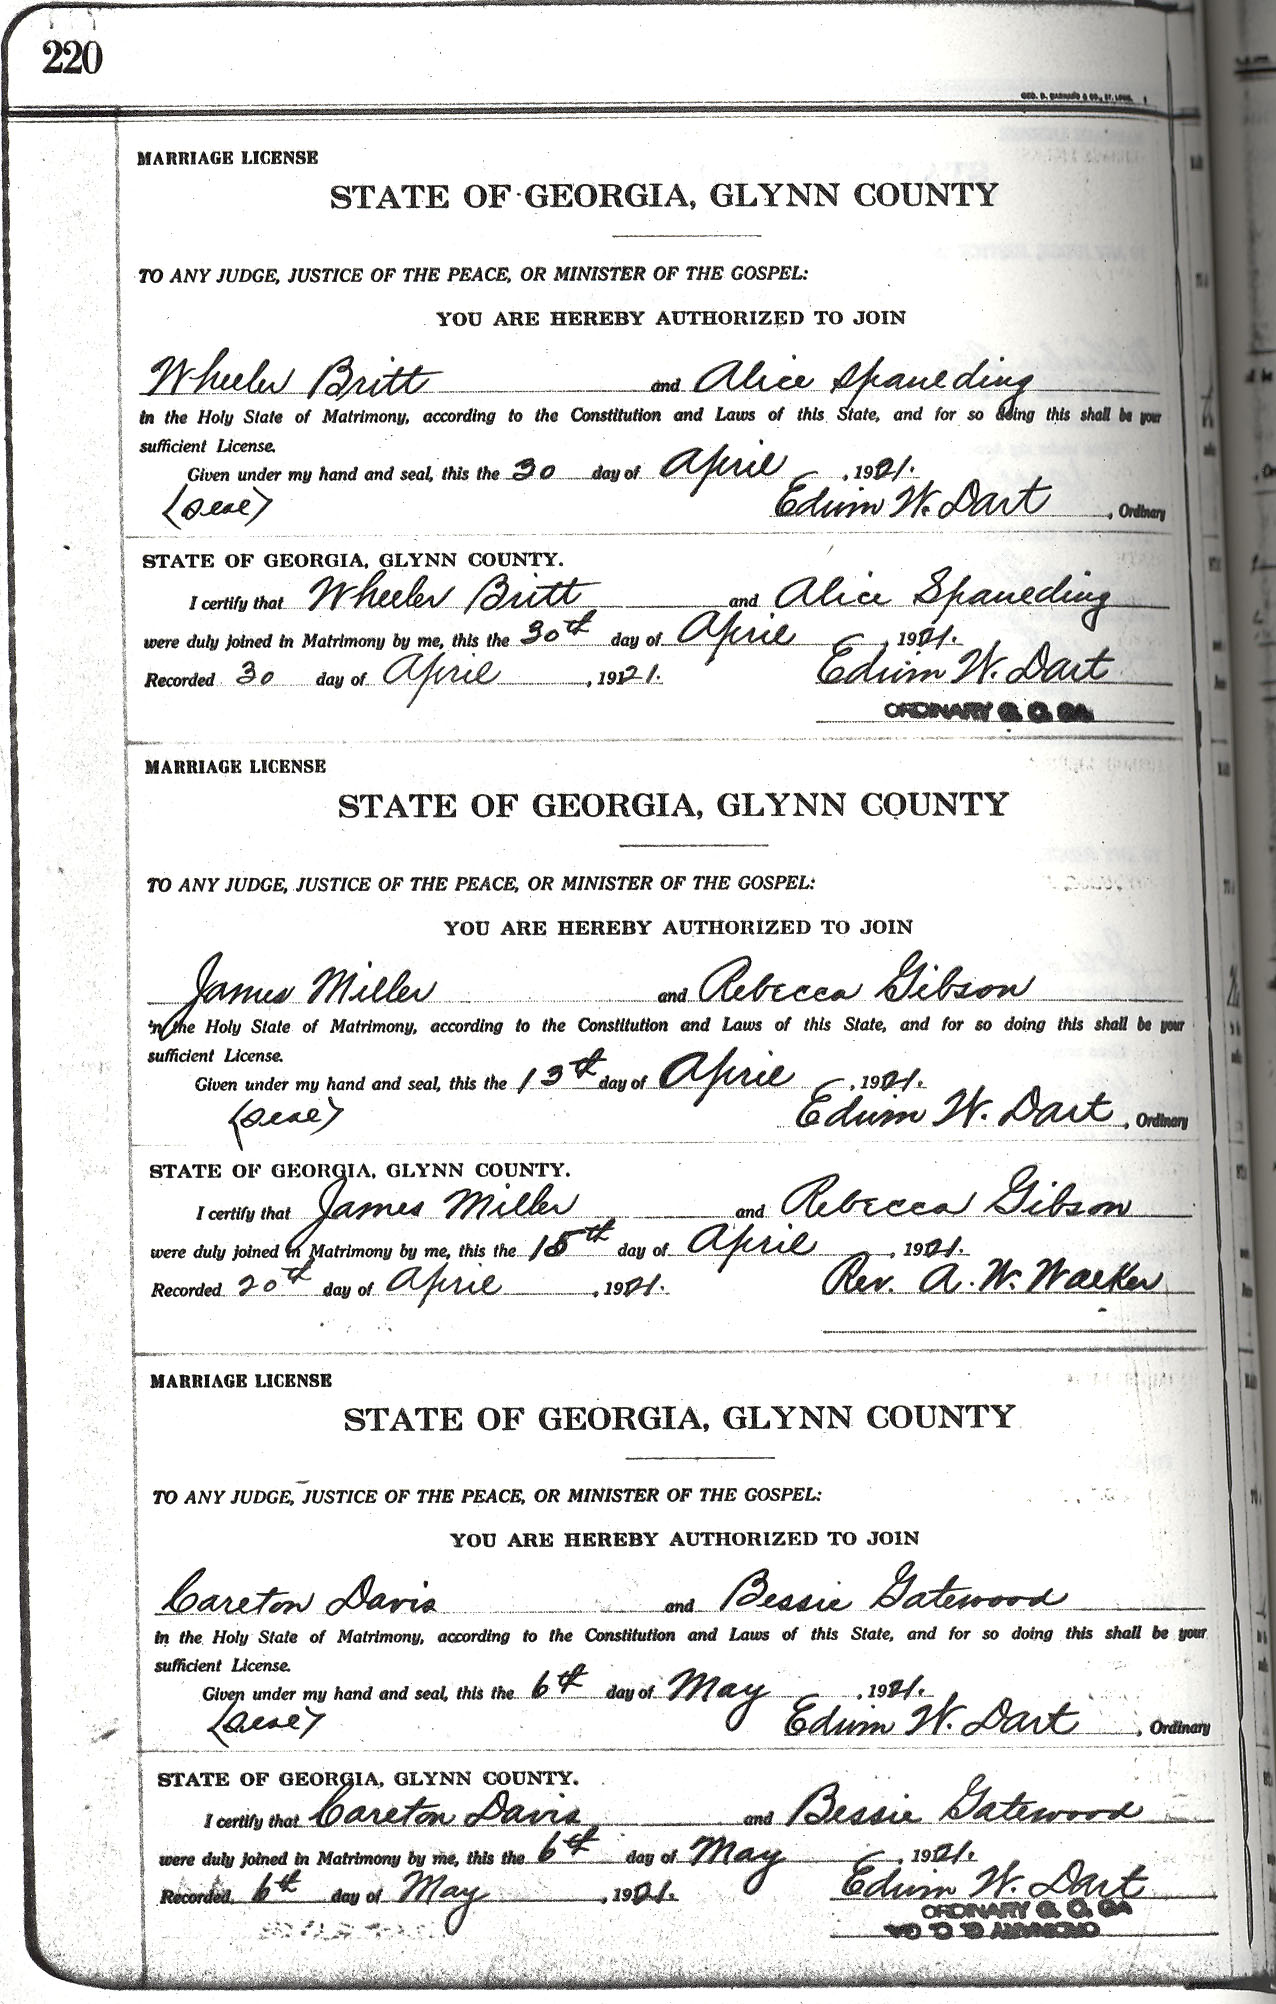 220
GEO. D. BARNARD & CO., ST. LOUIS.
MARRIAGE LICENSE
STATE OF GEORGIA, GLYNN COUNTY
TO ANY JUDGE, JUSTICE OF THE PEACE, OR MINISTER OF THE GOSPEL:
YOU ARE HEREBY AUTHORIZED TO JOIN
Wheeler Britt and Alice Spaulding
in the Holy State of Matrimony, according to the Constitution and Laws of this State, and for so doing this shall be your
sufficient License.
Given under my hand and seal, this the 30 day of April, 1921.
(Seal) Edwin W. Dart, Ordinary
STATE OF GEORGIA, GLYNN COUNTY.
I certify that Wheeler Britt and Alice Spaulding
were duly joined in Matrimony by me, this the 30th day of April, 1921.
Recorded 30 day of April, 1921. Edwin W. Dart
ORDINARY G. C. GA.
MARRIAGE LICENSE
STATE OF GEORGIA, GLYNN COUNTY
TO ANY JUDGE, JUSTICE OF THE PEACE, OR MINISTER OF THE GOSPEL:
YOU ARE HEREBY AUTHORIZED TO JOIN
James Miller and Rebecca Gibson
in the Holy State of Matrimony, according to the Constitution and Laws of this State, and for so doing this shall be your
sufficient License.
Given under my hand and seal, this the 13th day of April, 1921.
(Seal) Edwin W. Dart, Ordinary
STATE OF GEORGIA, GLYNN COUNTY.
I certify that James Miller and Rebecca Gibson
were duly joined in Matrimony by me, this the 15th day of April, 1921.
Recorded 20th day of April, 1921. Rev. A. W. Walker
MARRIAGE LICENSE
STATE OF GEORGIA, GLYNN COUNTY
TO ANY JUDGE, JUSTICE OF THE PEACE, OR MINISTER OF THE GOSPEL:
YOU ARE HEREBY AUTHORIZED TO JOIN
Carlton Davis and Bessie Gatewood
in the Holy State of Matrimony, according to the Constitution and Laws of this State, and for so doing this shall be your
sufficient License.
Given under my hand and seal, this the 6th day of May, 1921.
(Seal) Edwin W. Dart, Ordinary
STATE OF GEORGIA, GLYNN COUNTY.
I certify that Carlton Davis and Bessie Gatewood
were duly joined in Matrimony by me, this the 6th day of May, 1921.
Recorded, 6th day of May, 1921. Edwin W. Dart
ORDINARY G. C. GA
ORDINARY G. C. GA.